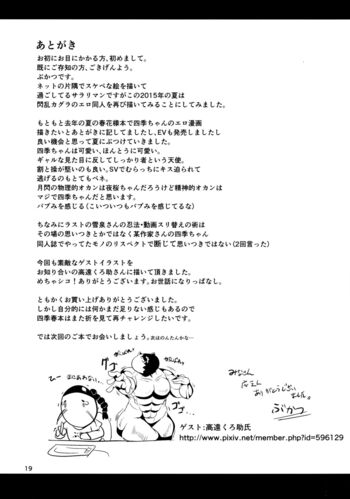 あとがき
お初にお目にかかる方、初めまして。
既にご存知の方、ごきげんよう。
ぶかつです。
ネットの片隅でスケベな絵を描いて
過ごしてるサラリマンですがこの2015年の夏は
閃乱カグラのエロ同人を再び描いてみることにしてみました。
もともと去年の夏の春花様本で四季ちゃんのエロ漫画
描きたいとあとがきに記してましたし、EVも発売しましたし
良い機会と思って夏にぶつけていきました。
四季ちゃんは可愛い、ほんとうに可愛い。
ギャルな見た目に反してしっかり者という天使。
割と操が堅いのも良い。SVでむらっちにキス迫られて
逃げるのもとてもベネ。
月閃の物理的オカンは夜桜ちゃんだろうけど精神的オカンは
マジで四季ちゃんだと思います。
バブみを感じる(こいついつもバブみを感じてるな)
ちなみにラストの雪泉さんの忍法・動画スリ替えの術は
その場の思いつきとかではなく某作家さんの四季ちゃん
同人誌でやってたモノのリスペクトで断じて思いつきではない(2回言った)
今回も素敵なゲストイラストを
お知り合いの高遠くろ助さんに描いて頂きました。
めちゃシコ!ありがとうございます。お世話になりっぱなし。
ともかくお買い上げありがとうございました。
しかし自分的には何かまだ足りない感じもあるので
四季春本はまた折を見て再チャレンジしたいです。
では次回のご本でお会いしましょう。次はのんたんかな…
ひー
グゴ
ゴゴ…
みなさん
ありがとうござい
ました。
ぶかつ
ゲスト:高遠くろ助氏
http://www.pixiv.net/member.php?id=596129
19